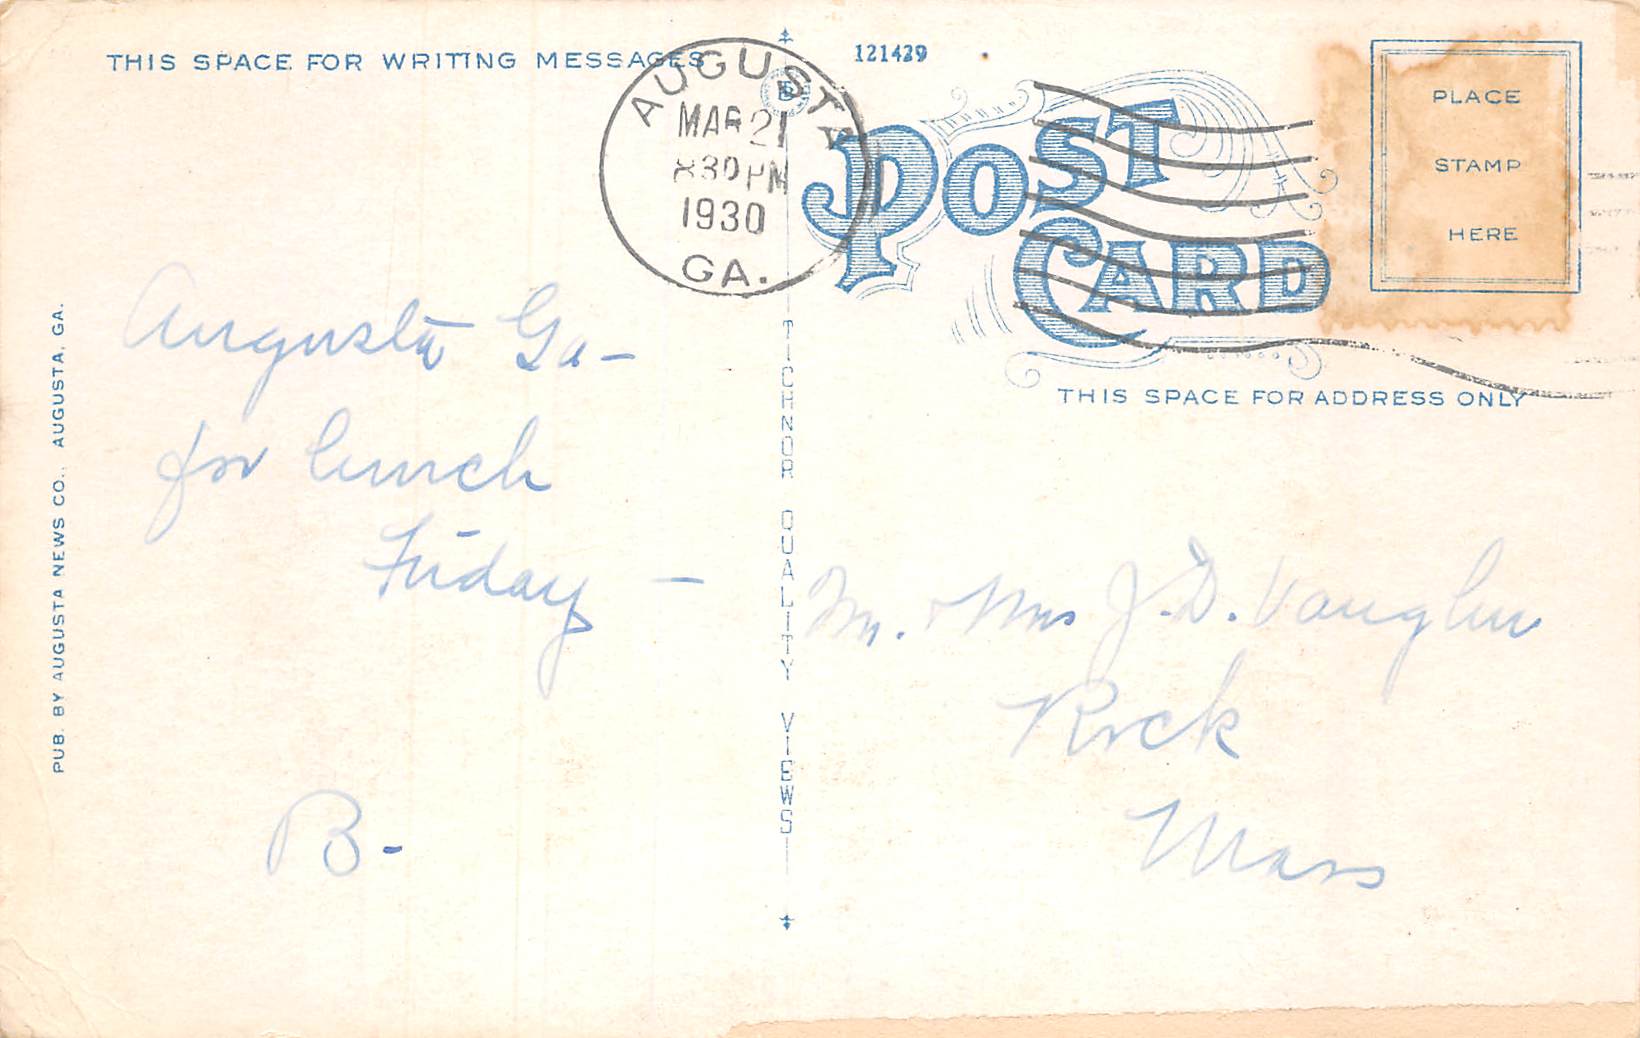 THIS SPACE FOR WRITING MESSAGES
121429
AUGUSTA
MAR 21
830 PM
1930
GA.
POST
CARD
PLACE
STAMP
HERE
THIS SPACE FOR ADDRESS ONLY
Augusta Ga -
for lunch
Friday -
B -
Mr. + Mrs J. D. Vaughn
Rock
Mass
TICHNOR QUALITY VIEWS
PUB. BY AUGUSTA NEWS CO., AUGUSTA, GA.